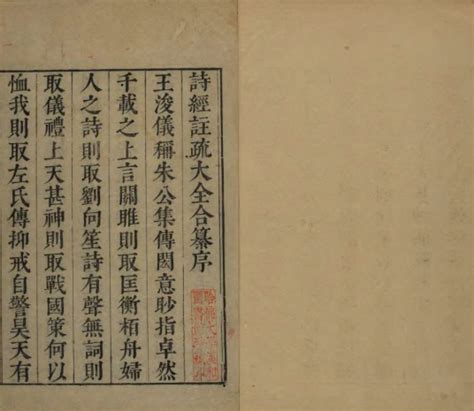 詩經註疏大全合纂序
王浚儀稱朱公集傳閎意眇指卓然
千載之上言關雎則取匡衡栢舟婦
人之詩則取劉向笙詩有聲無詞則
取儀禮上天甚神則取戰國策何以
恤我則取左氏傳抑戒自警昊天有